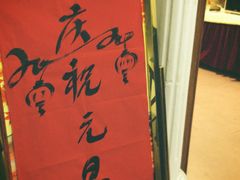 庆祝元旦